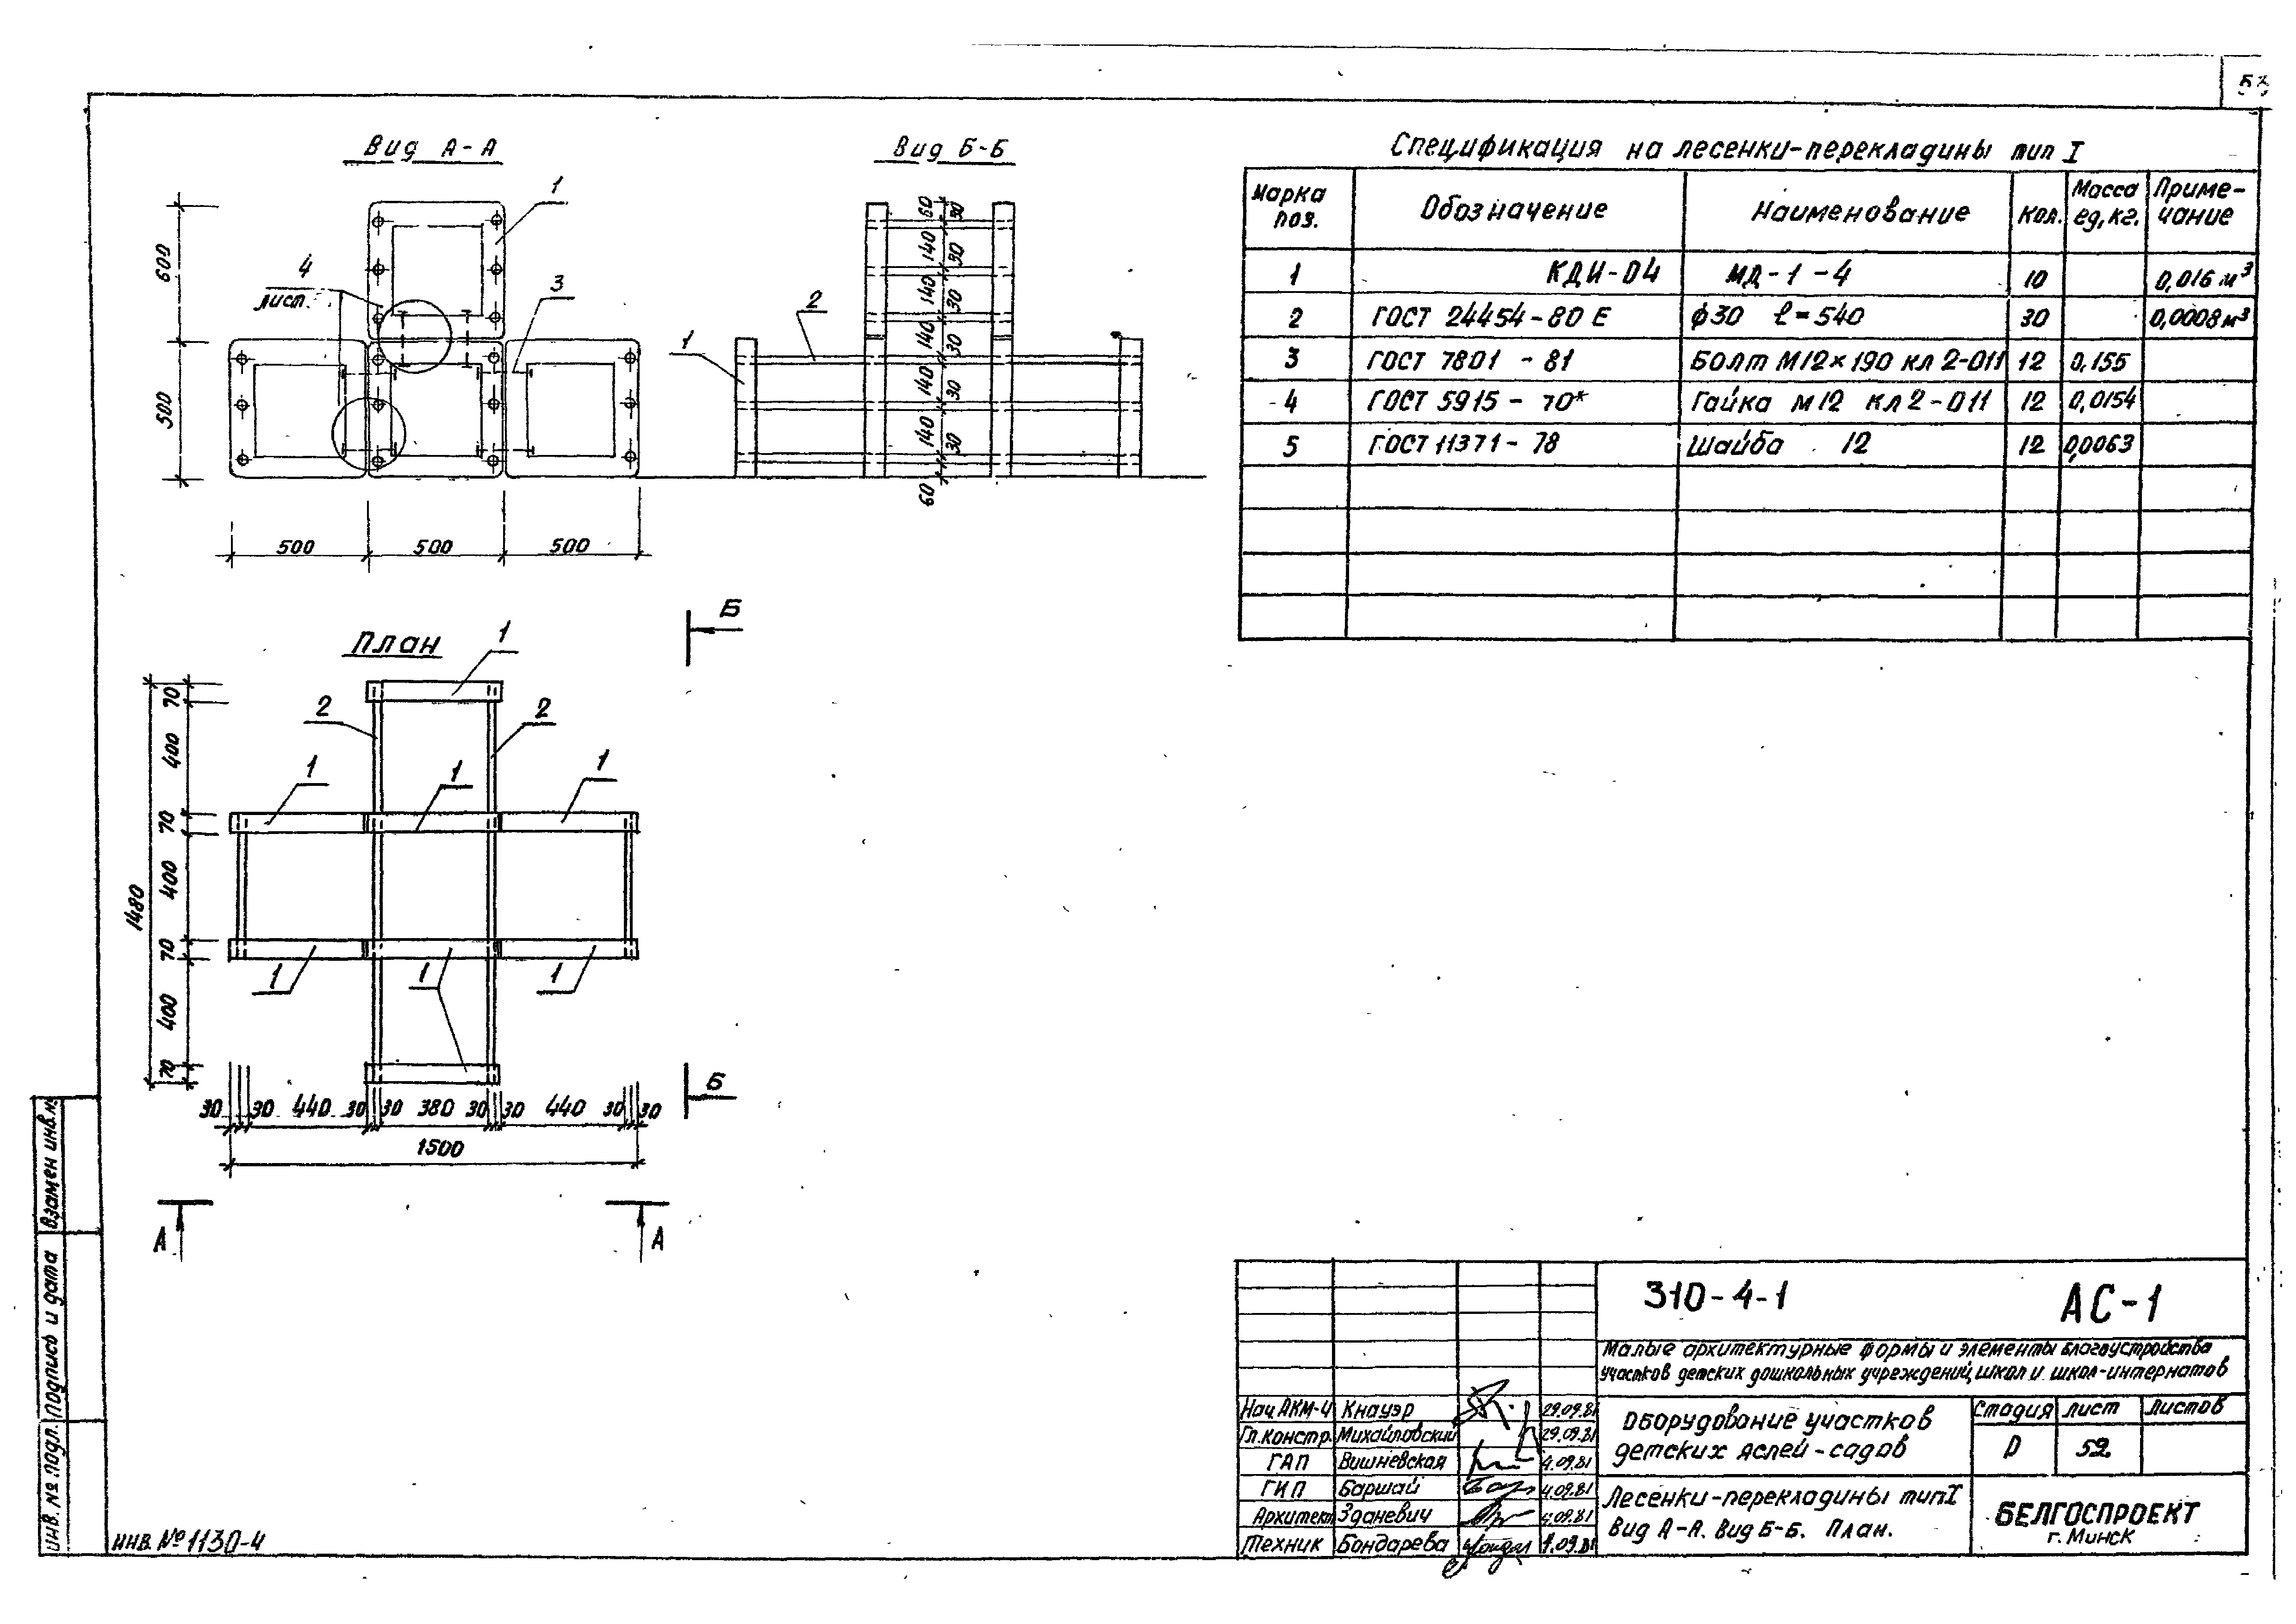 Вид А-А
Вид Б-Б
Спецификация на лесенки-перекладины тип I
Марка поз. Обозначение Наименование Кол. Масса ед, кг. Приме-чание
1 КДИ-04 МД-1-4 10 0,016 м³
2 ГОСТ 24454-80 Е ф30 ℓ=540 30 0,0008 м³
3 ГОСТ 7801-81 Болт М12×190 кл 2-011 12 0,155
4 ГОСТ 5915-70* Гайка М12 кл 2-011 12 0,0154
5 ГОСТ 11371-78 Шайба 12 12 0,0063
1
4
лист.
3
600
500
500 500 500
1
2
60 140 140 140 140 140 60
30 30 30 30 30 30
План
1
2
2
1
1
1
1
1
1
70
400
70
400
70
400
70
1480
30 30 440 30 30 380 30 30 440 30 30
1500
Б
Б
А
А
310-4-1 АС-1
Малые архитектурные формы и элементы благоустройства
участков детских дошкольных учреждений, школ и школ-интернатов
Нач. АКМ-4 Кнауэр 29.09.81
Гл. констр. Михайловский 29.09.81
ГАП Вишневская 4.09.81
ГИП Баршай 4.09.81
Архитект. Зданевич 4.09.81
Техник Бондарева 1.09.81
Оборудование участков
детских яслей-садов
Стадия лист листов
Р 52.
Лесенки-перекладины тип I
Вид А-А. Вид Б-Б. План.
БЕЛГОСПРОЕКТ
г. Минск
Взамен инв.№
Подпись и дата
Инв. № подл.
инв. № 1130-4